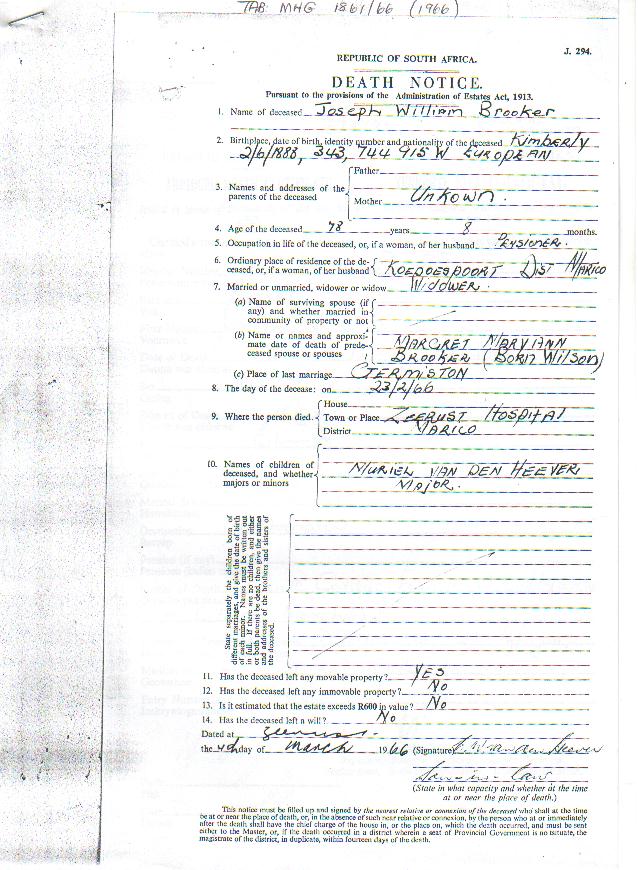 TAB MHG 1861/66 (1966)
J. 294.
REPUBLIC OF SOUTH AFRICA.
DEATH NOTICE.
Pursuant to the provisions of the Administration of Estates Act, 1913.
1. Name of deceased Joseph William Brooker
2. Birthplace, date of birth, identity number and nationality of the deceased Kimberly
2/6/1888, 343, 744 915 W EUROPEAN
3. Names and addresses of the parents of the deceased
Father
Mother Unkown.
4. Age of the deceased 78 years 8 months.
5. Occupation in life of the deceased, or, if a woman, of her husband PENSIONER.
6. Ordinary place of residence of the de-
ceased, or, if a woman, of her husband KOEDOESPOORT DIST MARICO
7. Married or unmarried, widower or widow WIDOWER.
(a) Name of surviving spouse (if
any) and whether married in
community of property or not
(b) Name or names and approxi-
mate date of death of prede-
ceased spouse or spouses
MARGRET MARYANN
BROOKER (BORN WILSON)
(c) Place of last marriage GERMISTON
8. The day of the decease: on 23/2/66
9. Where the person died.
House
Town or Place ZEERUST HOSPITAL
District MARICO
10. Names of children of
deceased, and whether
majors or minors
MURIEL VAN DEN HEEVER
MAJOR.
State separately the children born of
different marriages, and give the date of birth
of each minor. Names must be written out
in full. If there are no children, and either
or both parents be dead, then give the names
and addresses of the brothers and sisters of
the deceased.
11. Has the deceased left any movable property? YES
12. Has the deceased left any immovable property? No
13. Is it estimated that the estate exceeds R600 in value? No
14. Has the deceased left a will? No
Dated at Zeerust
the 4th day of March 1966 (Signature) van den Heever
Son-in-Law
(State in what capacity and whether at the time
at or near the place of death.)
This notice must be filled up and signed by the nearest relative or connexion of the deceased who shall at the time
be at or near the place of death, or, in the absence of such near relative or connexion, by the person who at or immediately
after the death shall have the chief charge of the house in, or the place on, which the death occurred, and must be sent
either to the Master, or, if the death occurred in a district wherein a seat of Provincial Government is no situate, the
magistrate of the district, in duplicate, within fourteen days of the death.